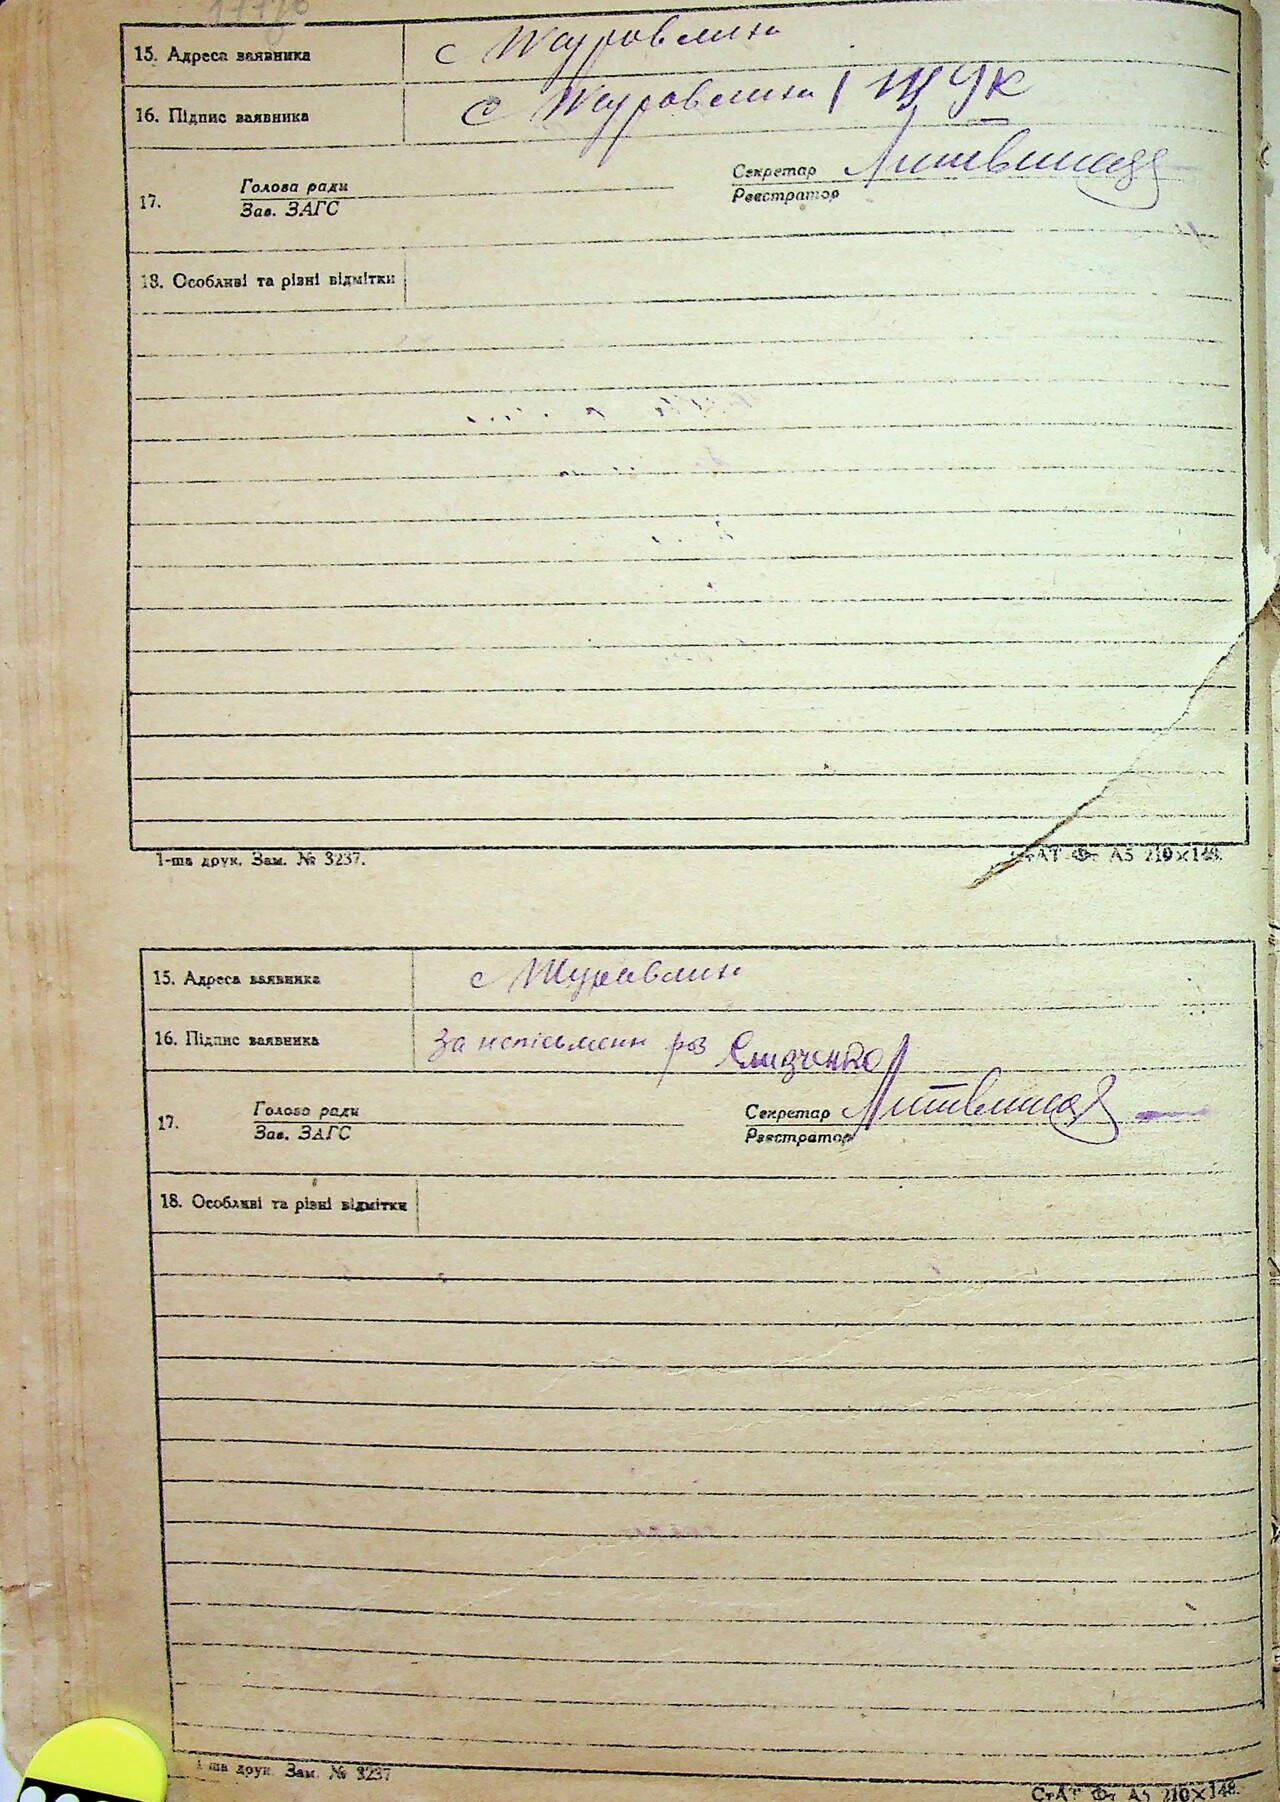 15. Адреса заявника с Журавлин
16. Підпис заявника с Журавлин / ЩУК
17. Голова ради Секретар Литвинчук
Зав. ЗАГС Реєстратор
18. Особливі та різні відмітки
1-ша друк. Зам. № 3237. СтАТ Фт А5 210×148.
15. Адреса заявника с Журавлин
16. Підпис заявника За неписьмени роз
17. Голова ради Секретар
Зав. ЗАГС Реєстратор
18. Особливі та різні відмітки
1-ша друк. Зам. № 3237 СтАТ Фт А5 210×148.